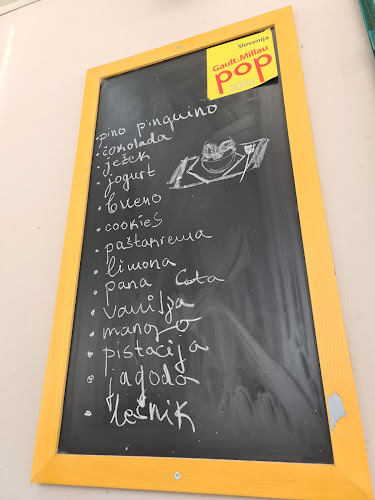 Slovenija
Gault&Millau
pop
• pino pinguino
• čokolada
• ježek
• jogurt
• bueno
• cookies
• paštakrema
• limona
pana cota
• vanilja
• mango
• pistacija
• jagoda
• lešnik